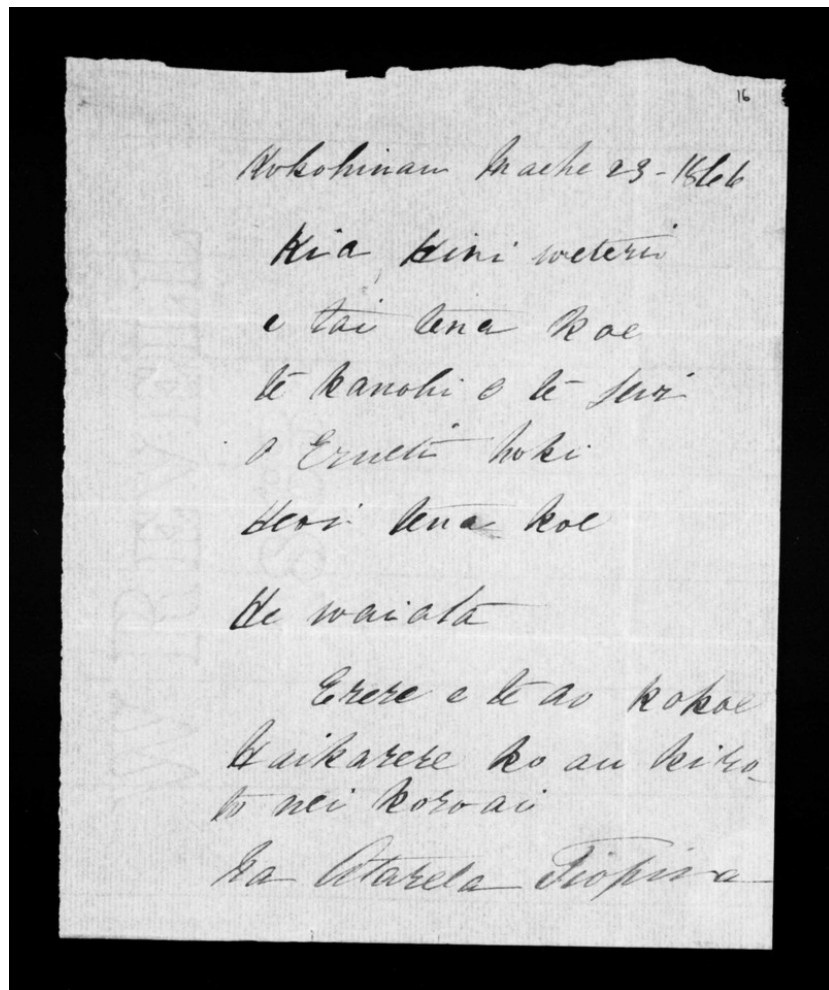 16
Kokohinau Maehe 23-1866
Kia Hini weteri
e tai tena koe
te kanohi o te iwi
o Erueti hoki
Heoi tena koe
He waiata
Erere e te ao kokoe
Haikarere ko au kiro
to nei koro ai
Na Atareta Tiopira